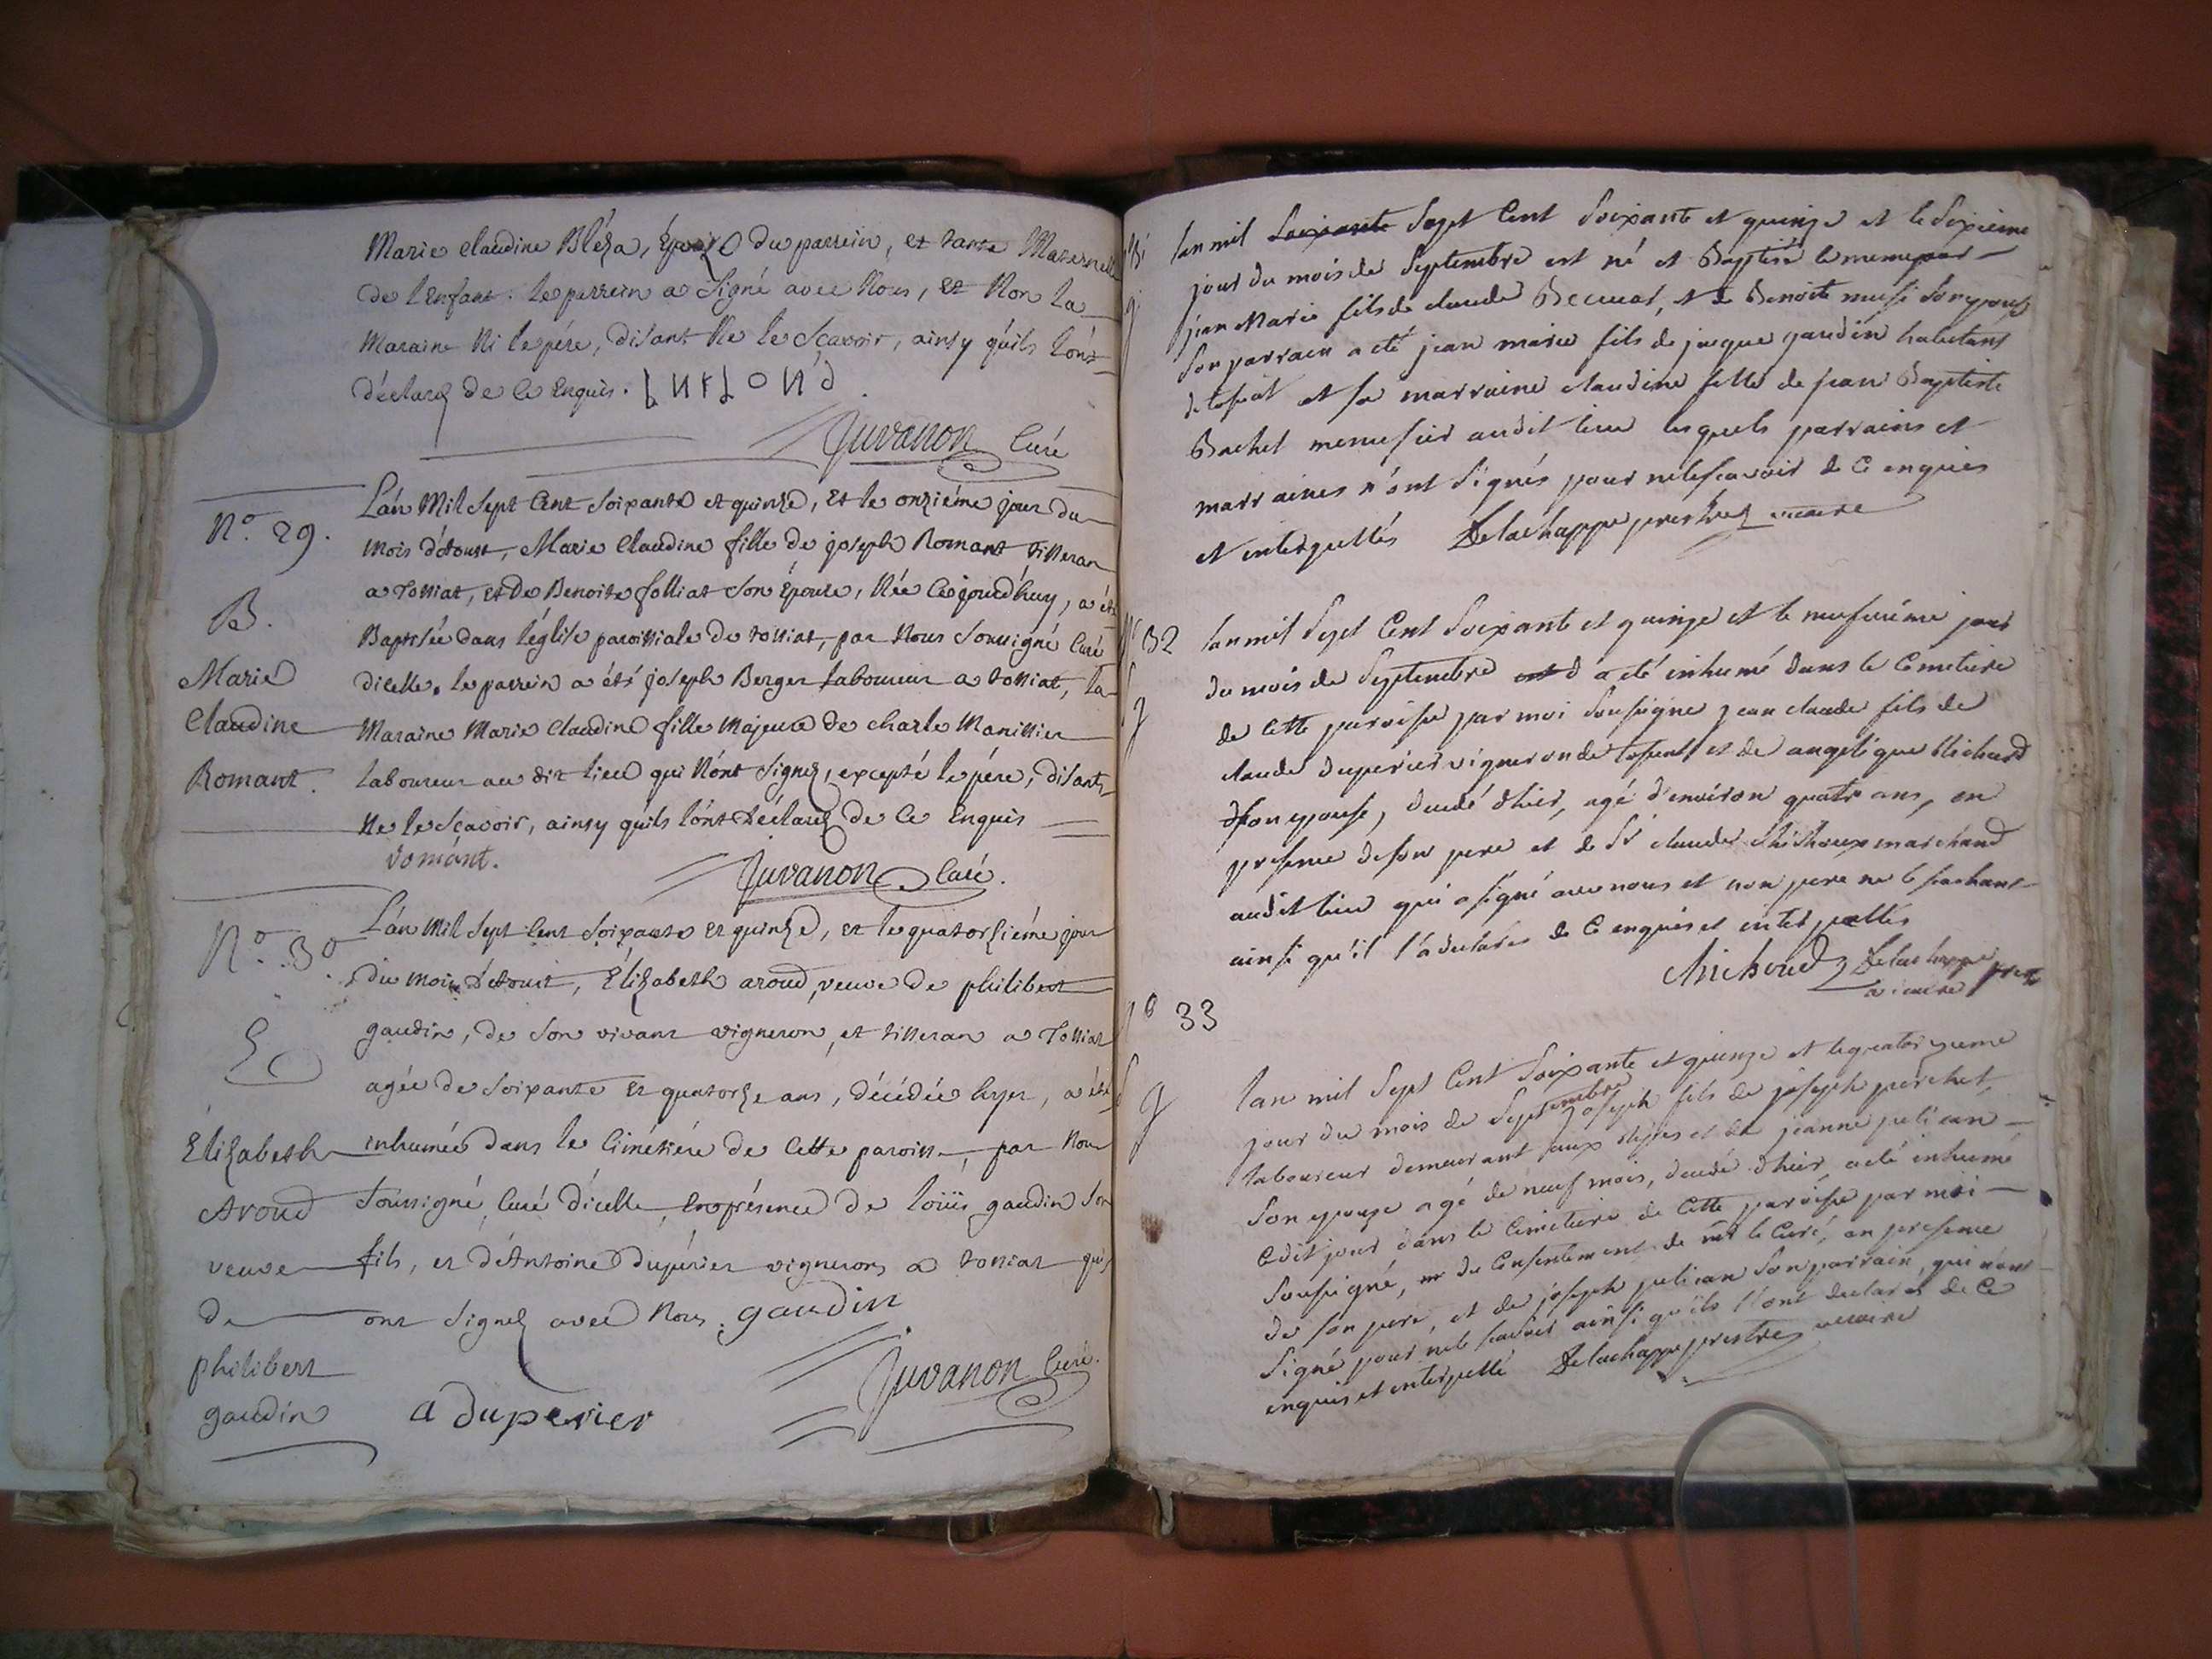 Marie Claudine Bléza, Épouze du parrein, et tante Maternelle
de l'Enfant. le parrein a Signé avec Nous, et Non la
Maraine Ni le pére, disant Ne le Sçavoir, ainsy qu'ils l'ont
déclaré de ce Enquis.
Juvanon Curé
N.º 29.
B.
Marie
Claudine
Romant.
L'an Mil Sept Cent Soixante et quinze, Et le onziéme jour du
mois d'Aoust, Marie Claudine fille de joseph Romant tisseran
a Tossiat, et de Benoite folliat Son Épouse, Née Cejourd'huy, a été
Baptisée dans l'église paroissiale de tossiat, par Nous Soussigné Curé
dicelle. le parrein a été joseph Berger Laboureur a tossiat, la
Maraine Marie Claudine fille Majeure de charle Manissier
Laboureur au dit lieu qui N'ont Signez, excepté le pére, disants
Ne le Sçavoir, ainsy qu'ils l'ont Déclaré de Ce Enquis
Romant.
Juvanon Curé.
N.º 30.
E
Élizabeth
Aroud
veuve
de
philibert
gaudin
L'an Mil Sept Cent Soixante et quinze, et le quatorziéme jour
du mois d'Aoust, Élizabeth aroud, veuve de philibert
gaudin, de Son vivant vigneron, et tisseran a Tossiat
agée de Soixante et quatorze ans, décédée hyer, a été
inhumée dans le Cimétiére de Cette paroisse, par Nous
Soussigné, Curé d'icelle, en présence de loüis gaudin Son
fils, et d'Antoine dupérier vignerons a tossiat qui
ont Signez avec Nous. gaudin
Juvanon Curé.
a duperier
lan mil Soixante Sept Cent Soixante et quinze et le Sixieme
jour du mois de Septembre est né et Baptisé le meme jour
jean Marie fils de claude Becuat, et de Benoite musi Son epouse
Son parrain a été jean marie fils de jacque gaudin habitant
de tosiat et sa marraine claudine fille de jean Baptiste
Bachet menusier audit lieu lesquels parrains et
marraines n'ont Signés pour ne le scavoir de ce enquis
et interpellés Delachappe prestre vicaire
Nº 32
g
lan mil Sept Cent Soixante et quinze et le neufvième jour
du mois de Septembre est d a été inhumé dans le Cemetiere
de Cette paroisse par moi Sousigné jean claude fils de
claude duperier vigneron de tosiat et de angelique Michard
Son epouse, decedé d'hier, agé d'environ quatre ans, en
presence de son pere et de Sr claude chichoux marchand
audit lieu qui a signé avec nous et non pere ne le sachant
ainsi qu'il l'a declarés de Ce enquis et interpellés
Chichoud Delachappe prestre
vicaire
Nº 33
g
lan mil Sept Cent Soixante et quinze et le quatorzieme
jour du mois de Septembre joseph fils de joseph perchet,
laboureur demeurant aux et de jeanne pelican
Son epouze agé de neuf mois, decedé d'hier, a été inhumé
cedit jour dans le Cimetiere de Cette paroisse par moi
Sousigné, du Consentement de mr le Curé, en presence
de son pere, et de joseph pelican Son parrain, qui n'ont
Signé pour ne le scavoir ainsi qu'ils l'ont declarés de Ce
enquis et interpellé Delachappe prestre vicaire